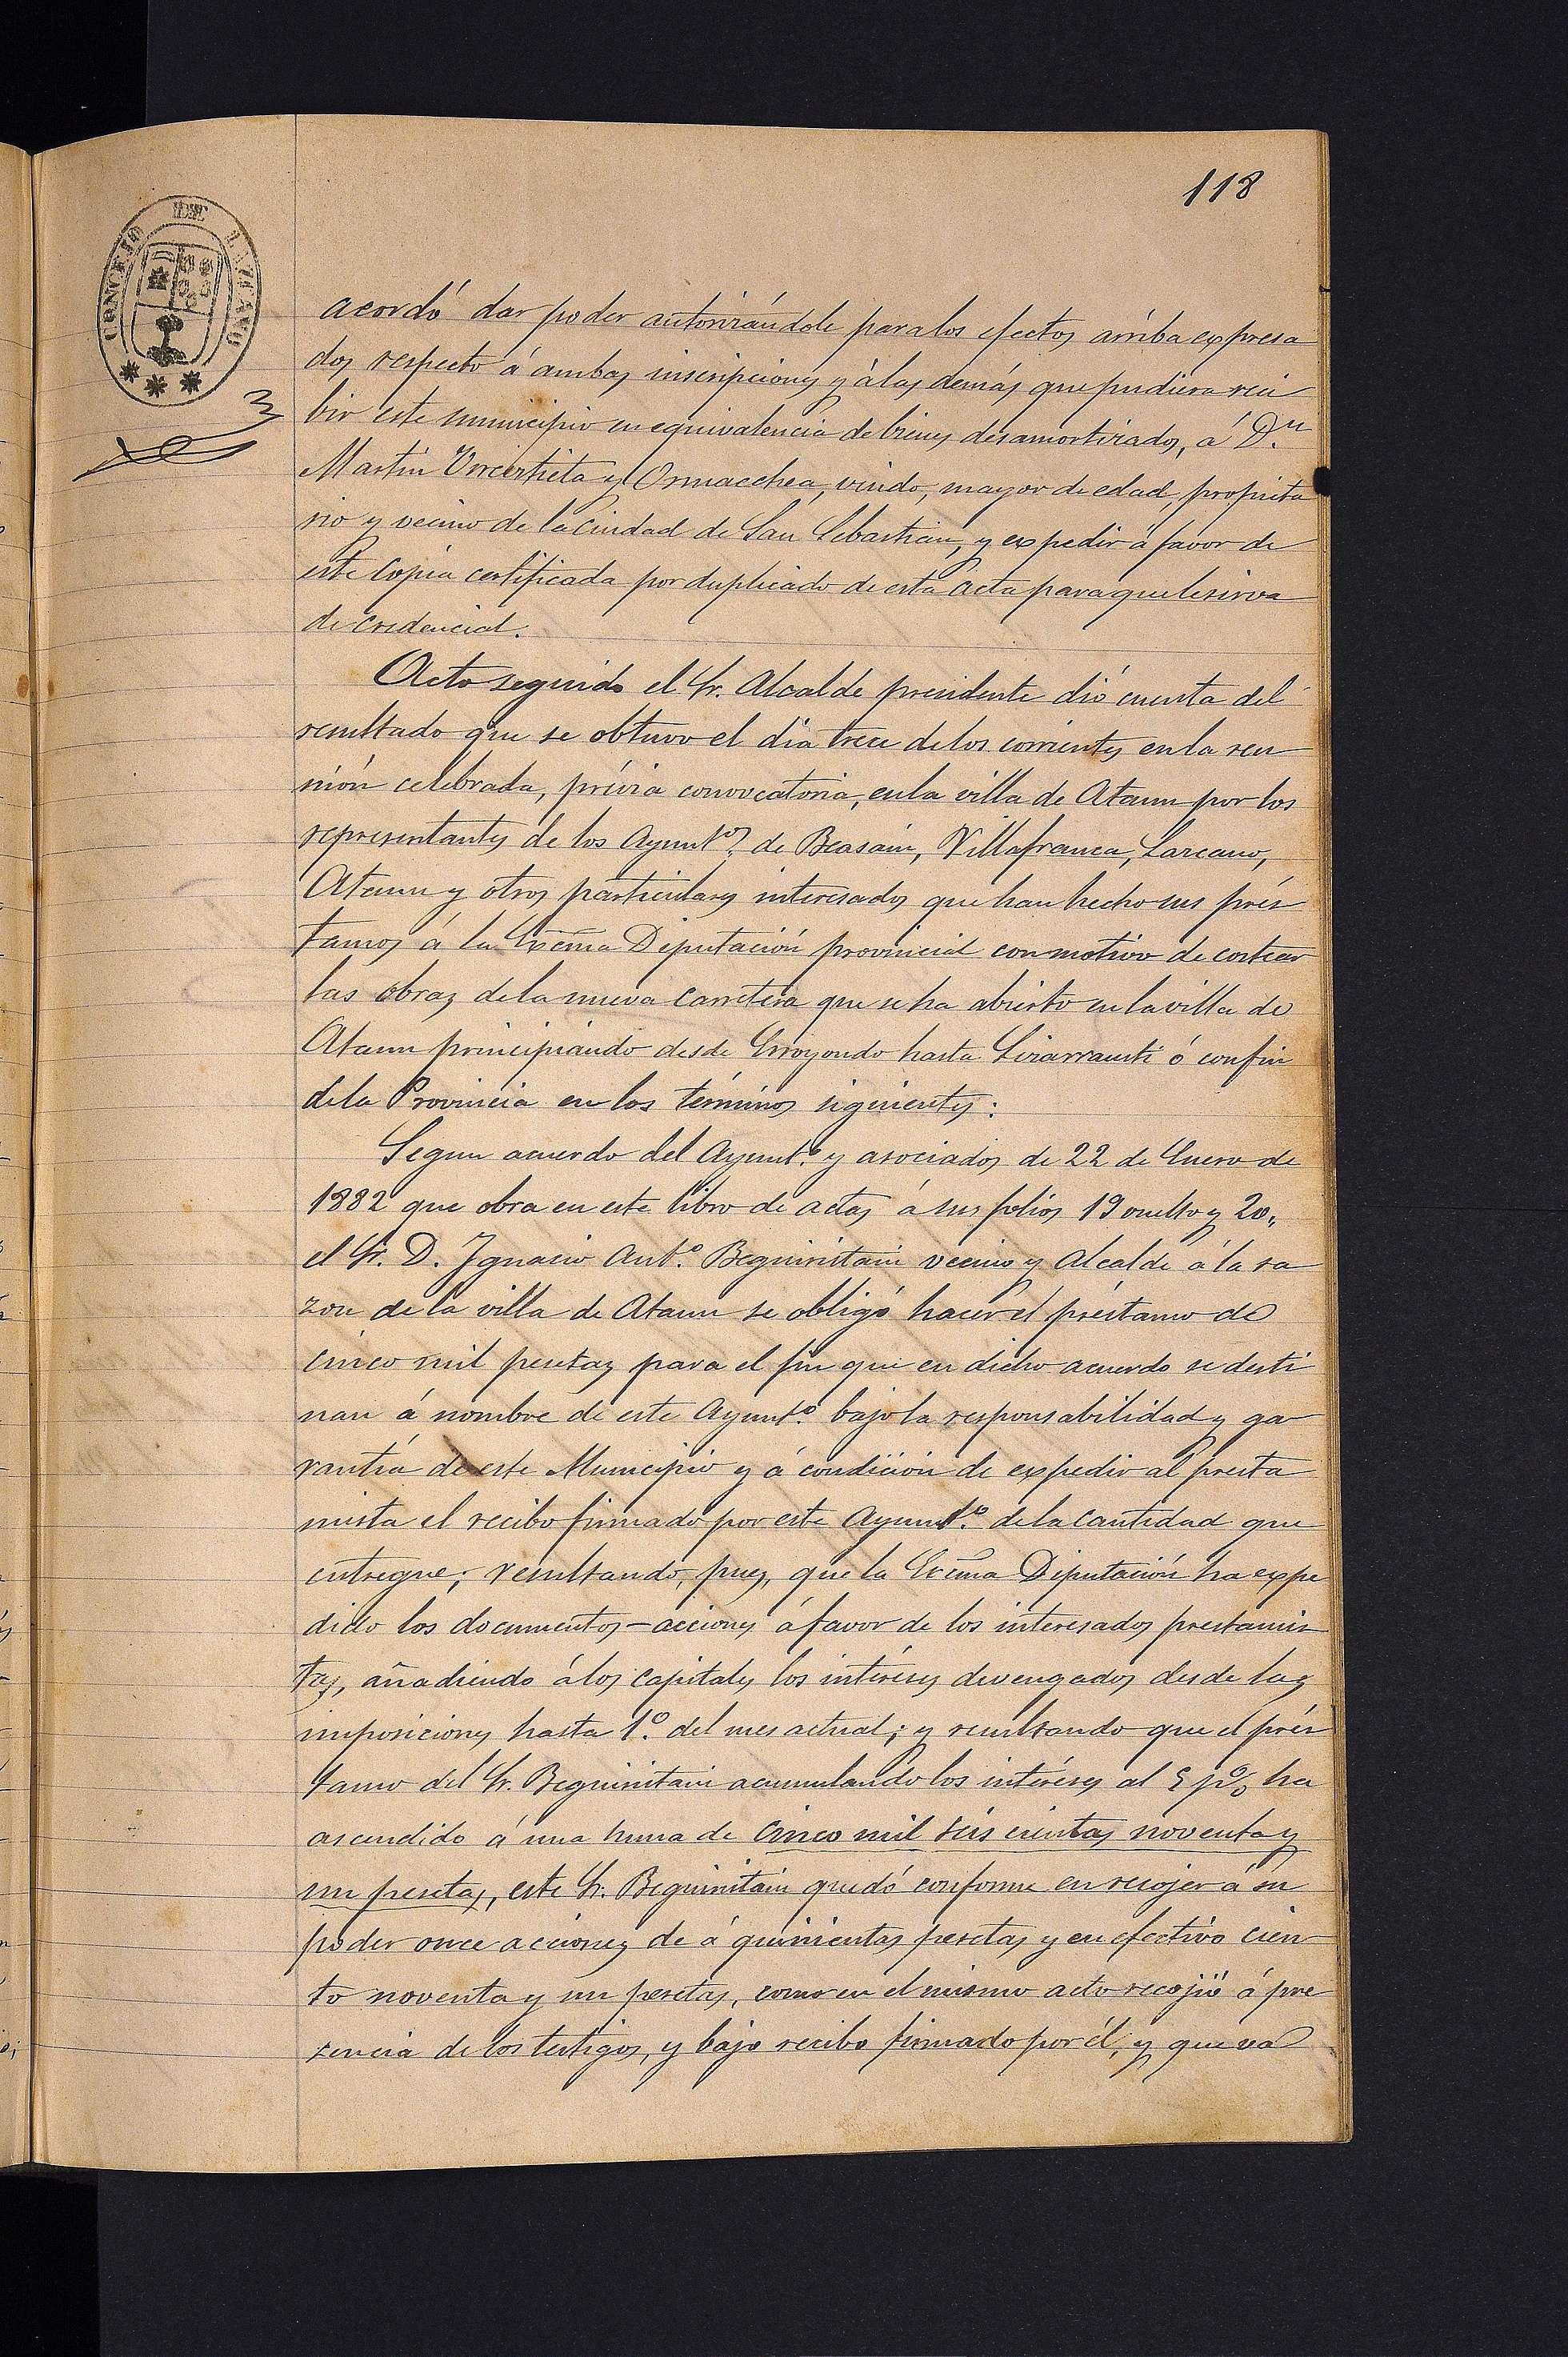 118
CONCEJO DE LAZCANO
acordó dar poder autorizándole para los efectos arriba expresa
dos respecto á ambas inscripciones y á las demás que pudiera reci
bir este municipio en equivalencia de bienes desamortizados, á D.n
Martin Urcertieta y Ormaechea, viudo, mayor de edad, propieta
rio y vecino de la Ciudad de San Sebastian, y expedir á favor de
este Copia certificada por duplicado de esta acta para que le sirva
de credencial.
Acto seguido el Sr. Alcalde presidente dió cuenta del
resultado que se obtuvo el dia trece de los corrientes en la reu
nión celebrada, prévia convocatoria, en la villa de Ataun por los
representantes de los Ayunt.os de Beasain, Villafranca, Lazcano,
Ataun y otros particulares interesados que han hecho sus prés
tamos á la Excma Diputación provincial con motivo de costear
las obras de la nueva carretera que se ha abierto en la villa de
Ataun principiando desde Erroyondo hasta Lizarrausti ó confin
de la Provincia en los términos siguientes:
Segun acuerdo del Ayunt.o y asociados de 22 de Enero de
1882 que obra en este libro de actas á sus folios 19 vuelto y 20,
el Sr. D. Ignacio Ant.o Beguiristain vecino y Alcalde á la sa
zon de la villa de Ataun se obligó hacer el préstamo de
cinco mil pesetas para el fin que en dicho acuerdo se desti
nan á nombre de este Ayunt.o bajo la responsabilidad y ga
rantía de este Municipio y á condición de expedir al presta
mista el recibo firmado por este Ayunt.o de la cantidad que
entregue; resultando, pues, que la Excma Diputación ha expe
dido los documentos-acciones á favor de los interesados prestamis
tas, añadiendo á los capitales los intéreses devengados desde las
imposiciones hasta 1.o del mes actual; y resultando que el prés
tamo del Sr. Beguiristain acumulando los intéreses al 5 p% ha
ascendido á una suma de cinco mil seis cientas noventa y
un pesetas, este Sr. Beguiristain quedó conforme en recojer á su
poder once acciones de á quinientas pesetas y en efectivo cien
to noventa y un pesetas, como en el mismo acto recojió á pre
sencia de los testigos, y bajo recibo firmado por él, y que va